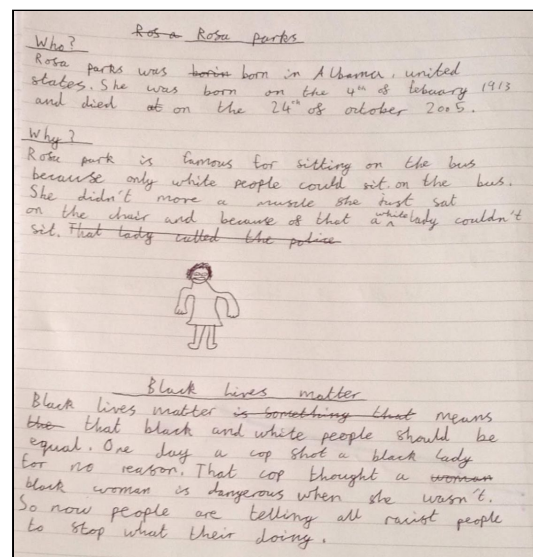 Ros a Rosa parks
Who?
Rosa parks was borin born in Albama, united
states. She was born on the 4th of febuary 1913
and died at on the 24th of october 2005.
Why?
Rosa park is famous for sitting on the bus
because only white people could sit on the bus.
She didn't more a muscle she just sat
on the chair and because of that a white lady couldn't
sit. That lady called the police
Black lives matter
Black lives matter is something that means
the that black and white people should be
equal. One day a cop shot a black lady
for no reason. That cop thought a woman
black woman is dangerous when she wasn't.
So now people are telling all racist people
to stop what their doing.